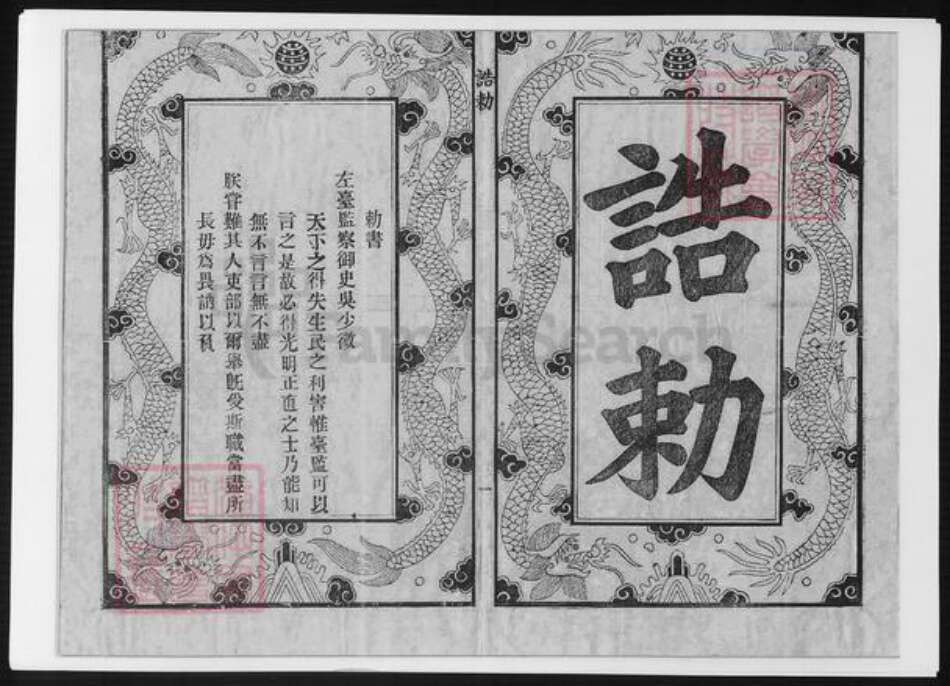 誥勅
誥勅
一
勅書
左臺監察御史吳少微
天下之得失生民之利害惟臺監可以
言之是故必得光明正直之士乃能知
無不言言無不盡
朕甞難其人吏部以爾舉旣受斯職當盡所
長毋為畏誚以
FamilySearch